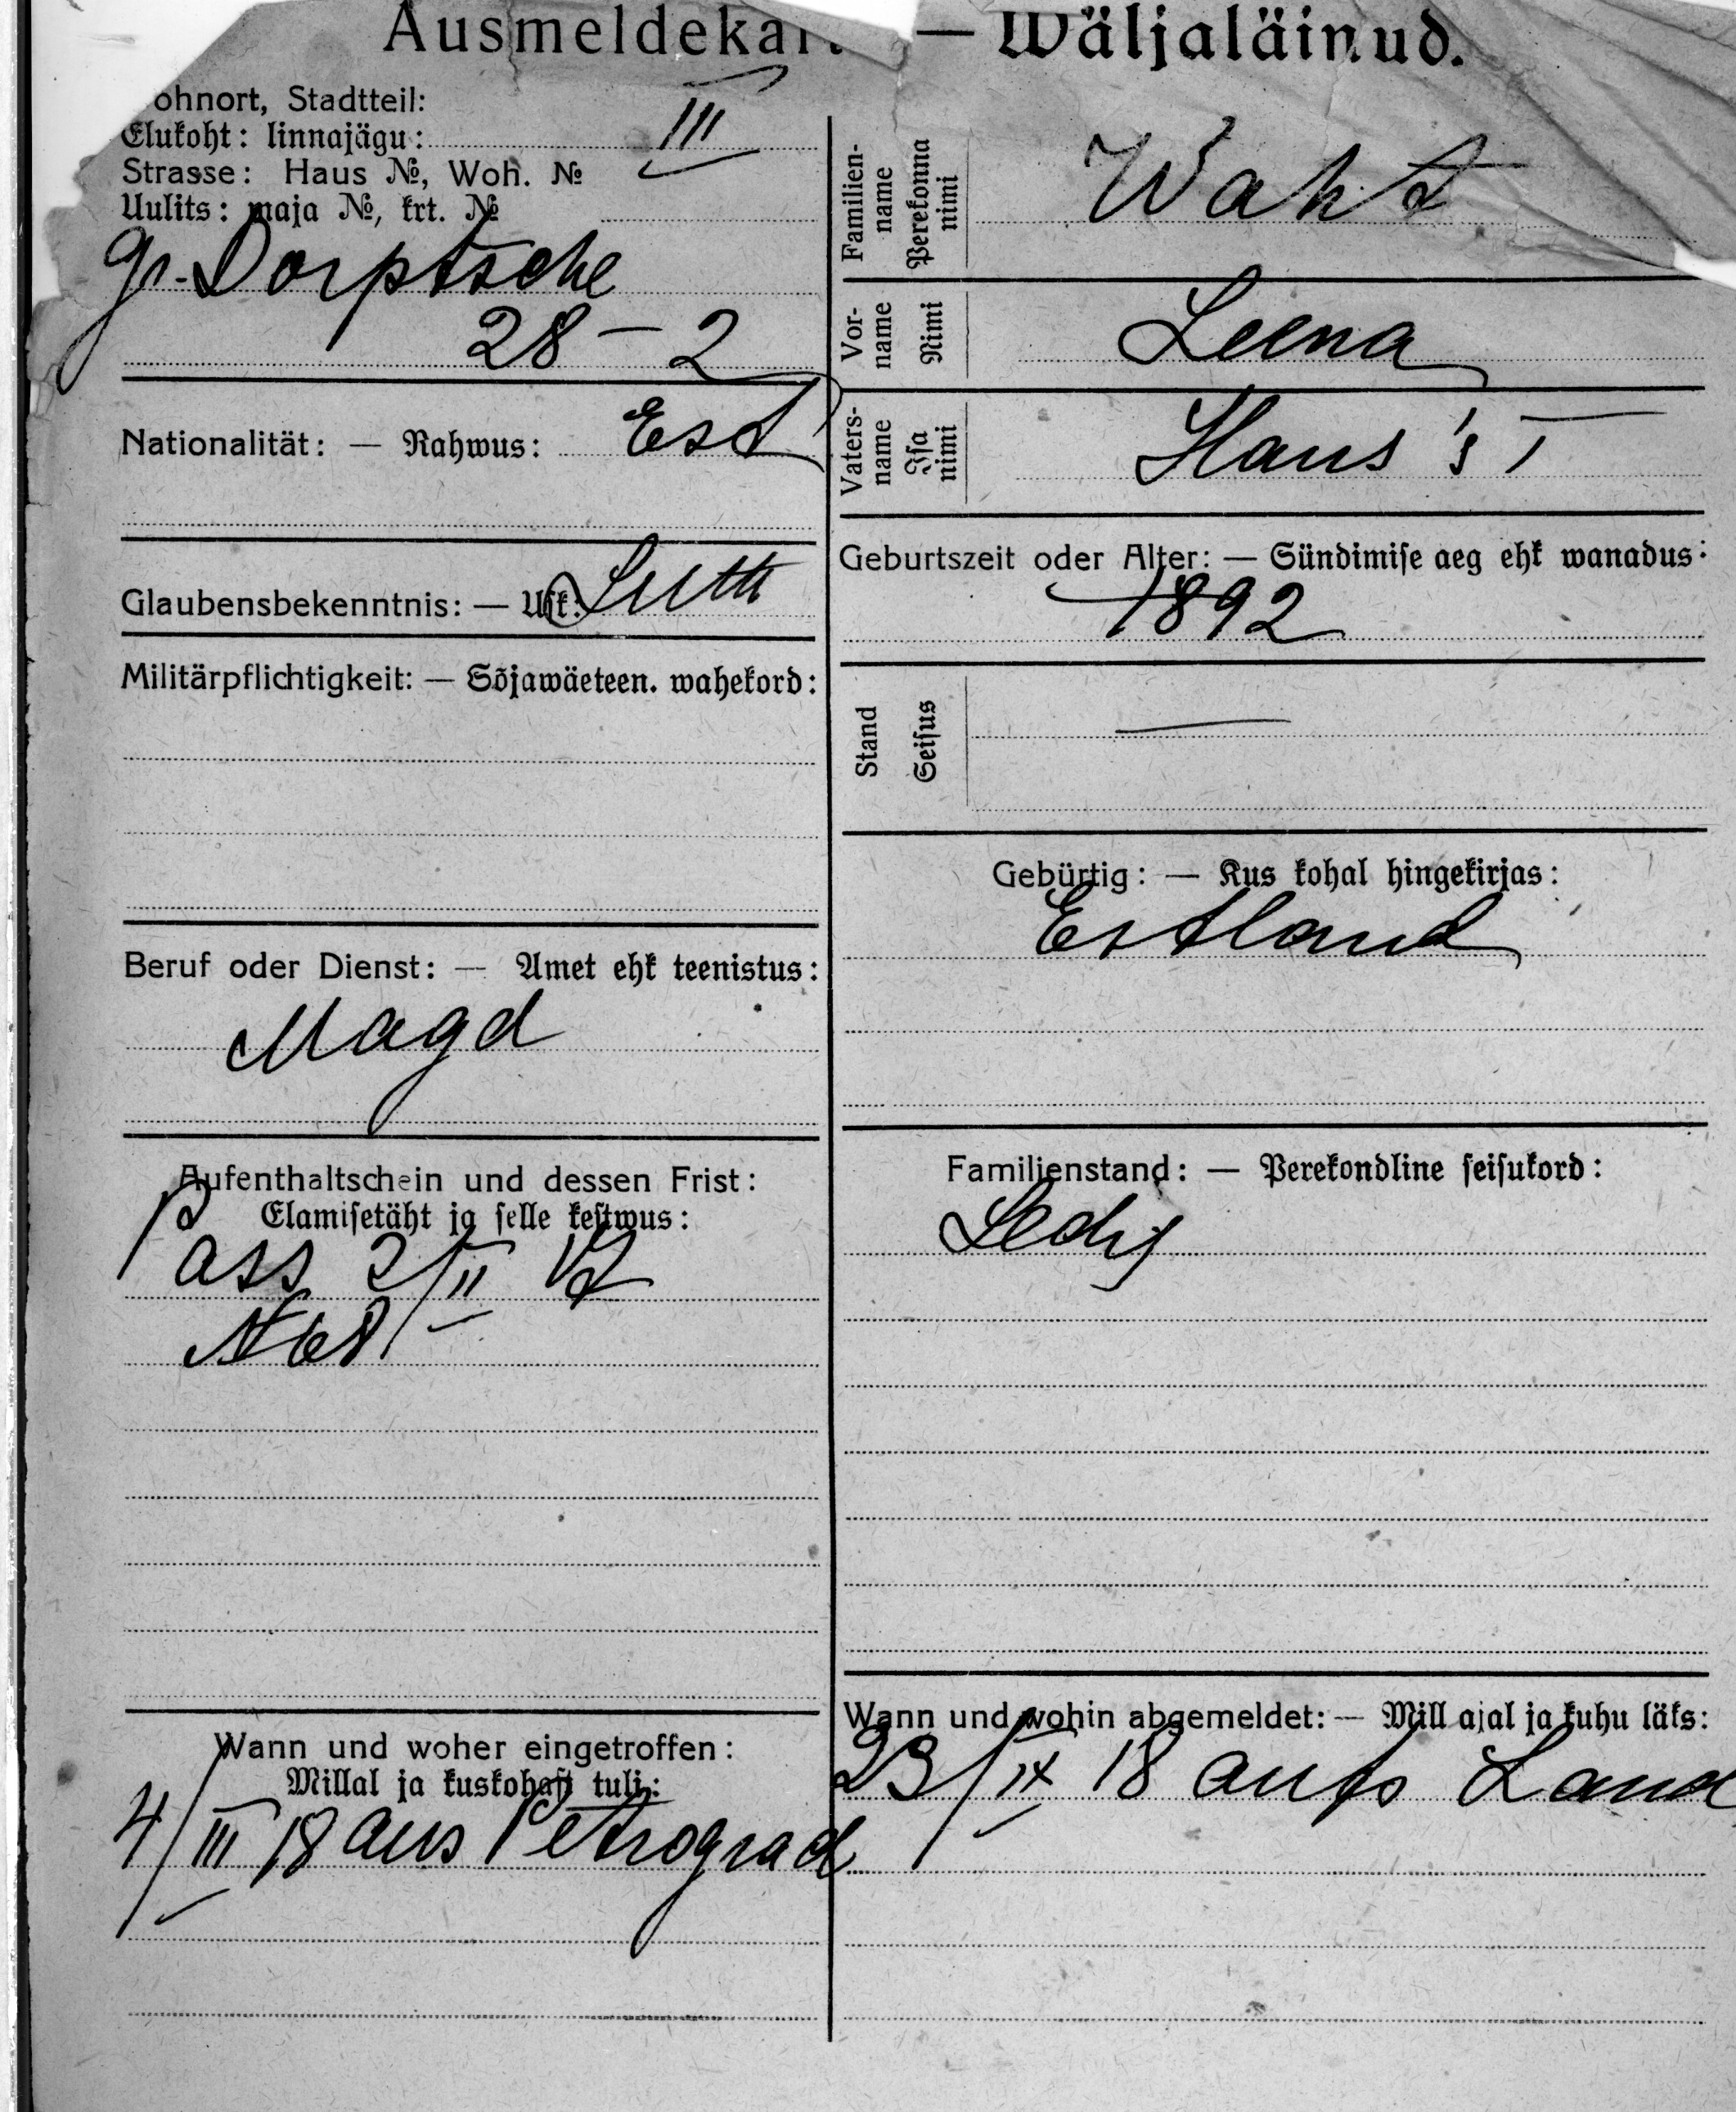 Ausmeldekar — Wäljaläinud.
ohnort, Stadtteil:
Elukoht: linnajägu: III
Strasse: Haus №, Woh. №
Uulits: maja №, krt. №
gr. Dorptsche
28 – 2
Nationalität: — Rahwus: Est
Glaubensbekenntnis: — Usk: Luth
Militärpflichtigkeit: — Sõjawäeteen. wahekord:
Beruf oder Dienst: — Amet ehk teenistus:
Magd
Aufenthaltschein und dessen Frist:
Elamisetäht ja selle kestwus:
Pass 2/II 12
№ 68
Wann und woher eingetroffen:
Millal ja kuskohast tuli:
4/III 18 aus Petrograd
Familien-
name
Perekonna
nimi
Waht
Vor-
name
Nimi
Leena
Vaters-
name
Isa
nimi
Hans's T
Geburtszeit oder Alter: — Sündimise aeg ehk wanadus:
1892
Stand
Seisus
—
Gebürtig: — Kus kohal hingekirjas:
Estland
Familienstand: — Perekondline seisukord:
Ledig
Wann und wohin abgemeldet: — Mill ajal ja kuhu läks:
23/IX 18 aufs Land